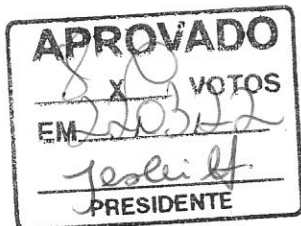 APROVADO
8 x 0 VOTOS
EM 22.03.22
PRESIDENTE